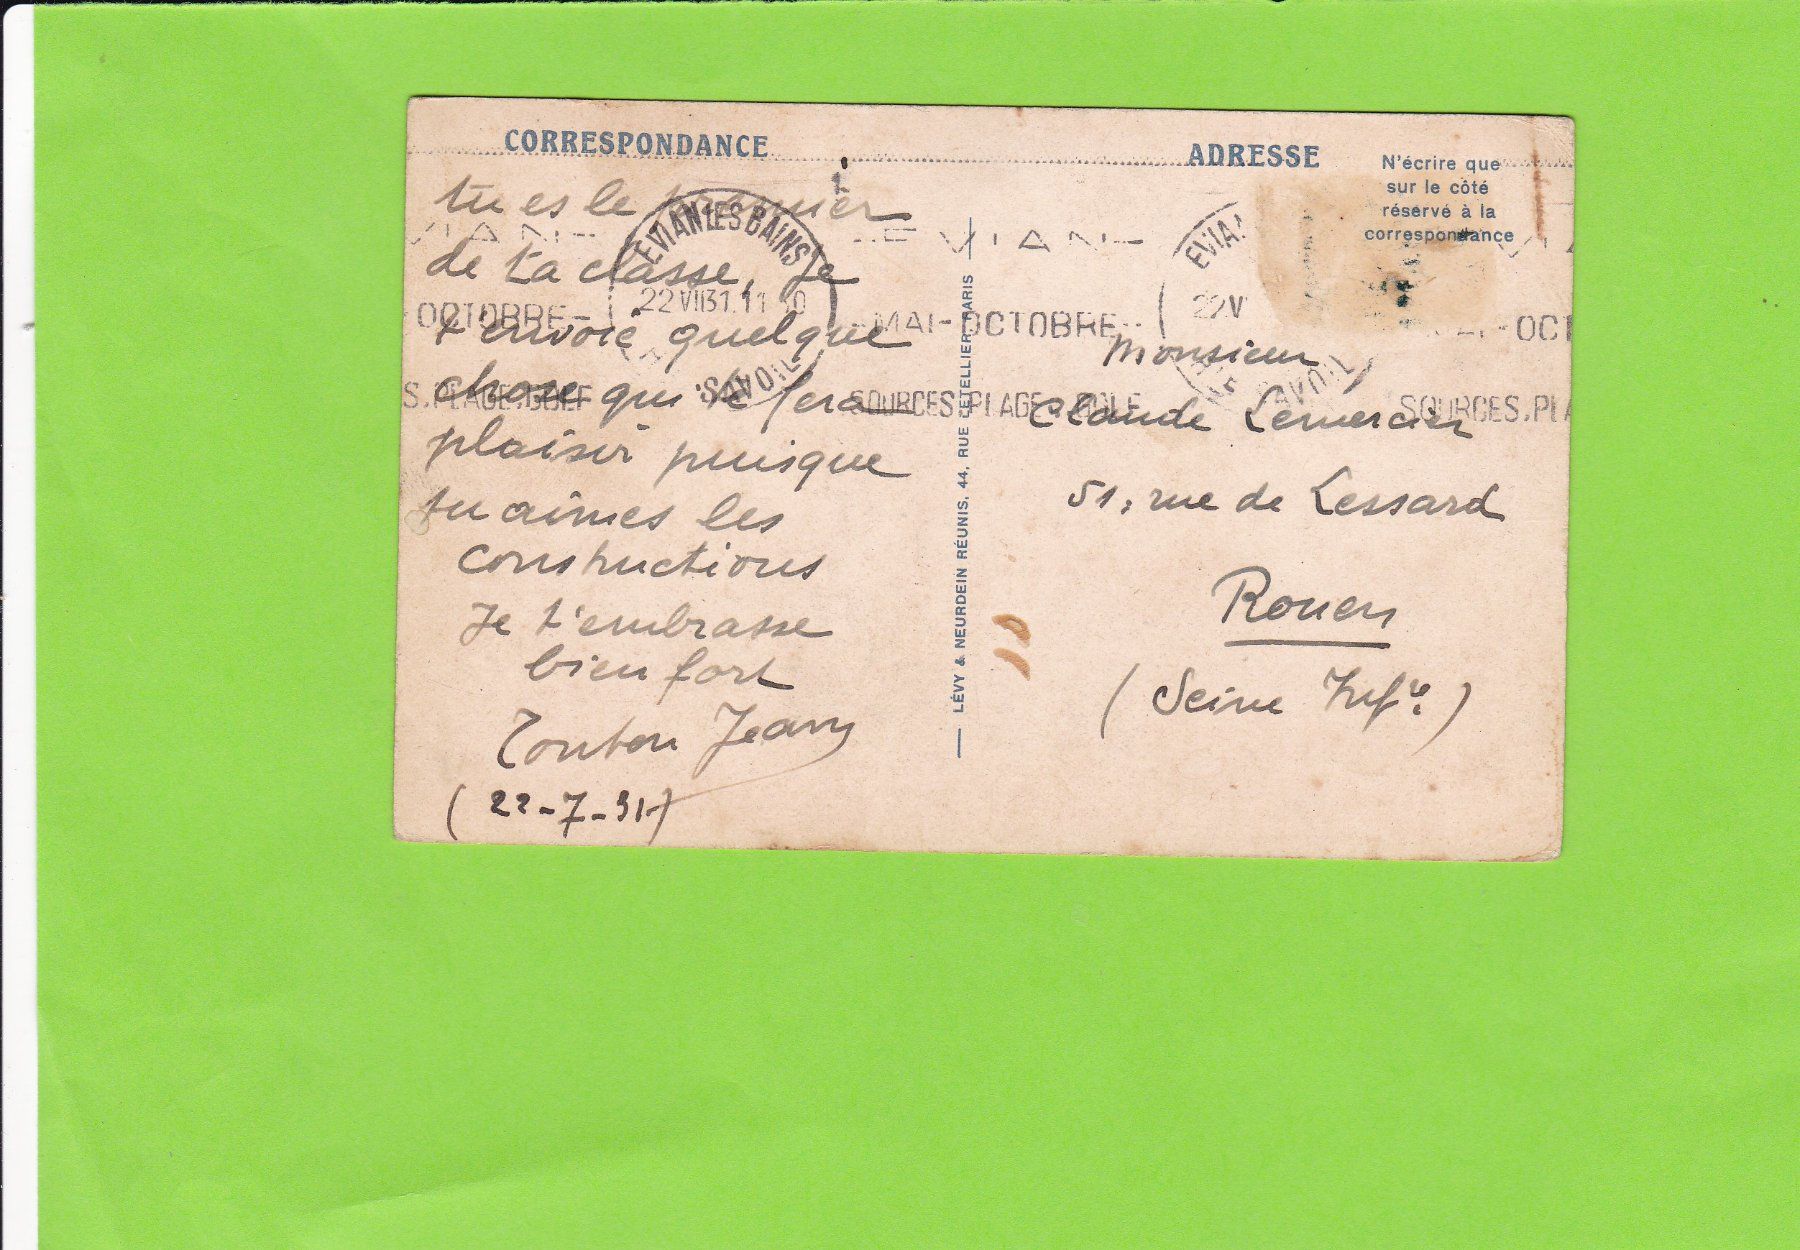 CORRESPONDANCE
tu es le premier
de ta classe, je
t'envoie quelque
chose qui te fera
plaisir puisque
tu aimes les
constructions
Je t'embrasse
bien fort
Tonton Jean
(22-7-31)
EVIAN LES BAINS
22 VII 31 11
SAVOIE
OCTOBRE-
S.PLAGE.GOLF
EVIAN-
MAI-OCTOBRE-
SOURCES.PLAGE.GOLF
LÉVY & NEURDEIN RÉUNIS, 44, RUE LETELLIER, PARIS
ADRESSE
N'écrire que
sur le côté
réservé à la
correspondance
EVIAN
22 V
SAVOIE
-OCT
SOURCES.PLA
Monsieur
Claude Lemercier
51, rue de Lessard
Rouen
(Seine Infre)